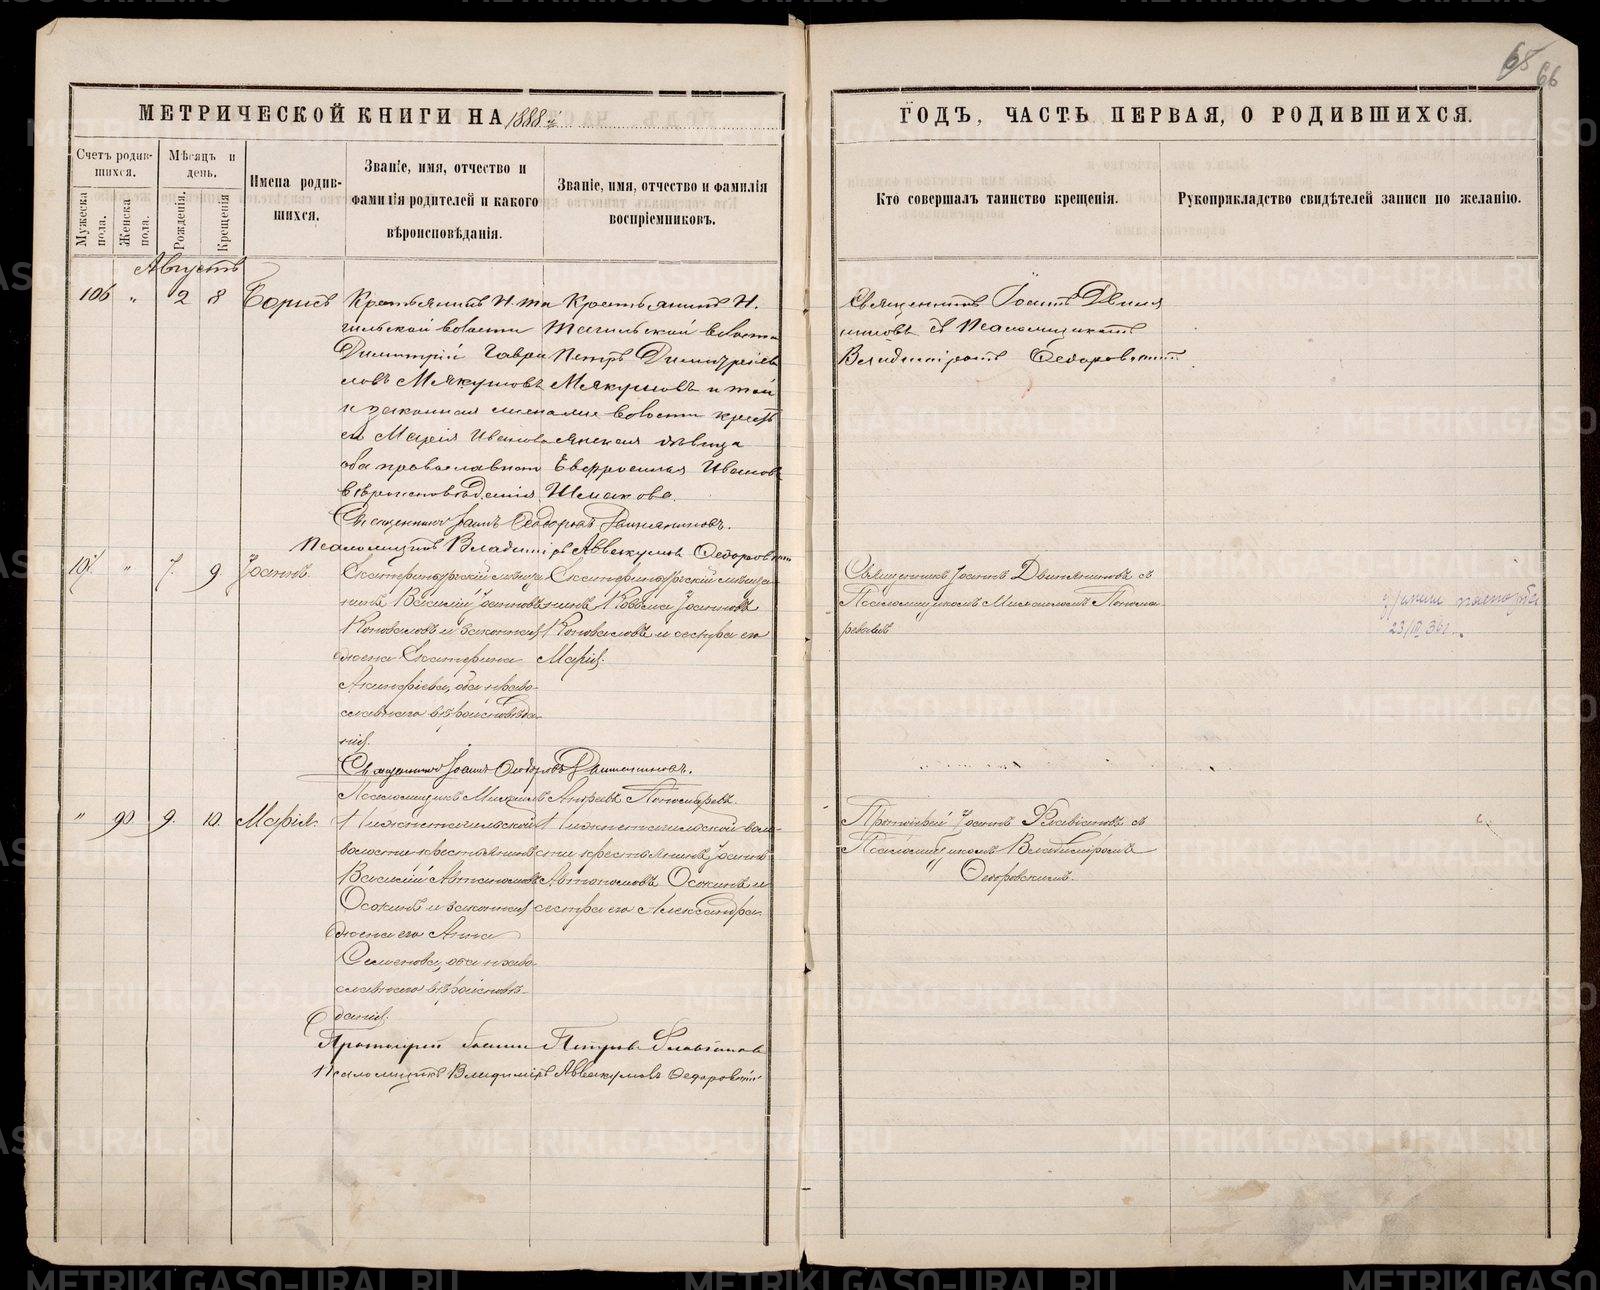 65 66
МЕТРИЧЕСКОЙ КНИГИ НА 1888 й
ГОДЪ, ЧАСТЬ ПЕРВАЯ, О РОДИВШИХСЯ.
Счетъ родив-
шихся.
Мужеска пола.
Женска пола.
Мѣсяцъ и
день.
Рожденія.
Крещенія
Имена родив-
шихся.
Званіе, имя, отчество и
фамилія родителей и какого
вѣроисповѣданія.
Званіе, имя, отчество и фамилія
воспріемниковъ.
Кто совершалъ таинство крещенія.
Рукоприкладство свидѣтелей записи по желанію.
Августъ
106 " 2 8 Борисъ
Крестьянинъ Н. Та
гильской волости
Димитрій Гаври
ловъ Мякушовъ
и законная
его Марія Иванова
оба православнаго
вѣроисповѣданія
Крестьянинъ Н.
Тагильской волости
Петръ Димитріевъ
Мякушовъ и той
же волости кресть
янская дѣвица
Евфросинія Иванова
Шмакова.
Священникъ Іоаннъ
съ Псаломщикомъ
Владиміромъ Федоровскимъ
Священникъ Іоаннъ Ѳеодоровъ Двиняниновъ.
Псаломщикъ Владиміръ Аввакумовъ Федоровскій
107. " 7. 9. Іоаннъ.
Екатеринбургскій мѣща
нинъ Василій Іоанновъ
Коноваловъ и законная
жена Екатерина
оба право-
славнаго вѣроисповѣда-
нія.
Екатеринбургскій мѣща-
нинъ Козьма Іоанновъ
Коноваловъ и сестра его
Марія.
Священникъ Іоаннъ Двиняниновъ съ
Псаломщикомъ Михаиломъ Понома-
ревымъ
23/III 36 г.
Священникъ Іоаннъ Ѳеодоровъ Двиняниновъ.
Псаломщикъ Михаилъ Андреевъ Пономаревъ.
" 90 9. 10. Марія.
Нижнетагильской
волости крестьянинъ
Василій Автономовъ
Осокинъ и законная
жена его Анна
Семенова, оба право-
славнаго вѣроисповѣ-
данія.
Нижнетагильской воло-
сти крестьянинъ Іоаннъ
Автономовъ Осокинъ и
сестра его Александра.
Протоіерей Іоаннъ Флавіановъ съ
Псаломщикомъ Владиміромъ
Ѳедоровскимъ.
Протоіерей Іоаннъ Петровъ Флавіановъ
Псаломщикъ Владиміръ Аввакумовъ Федоровскій
METRIKI.GASO-URAL.RU